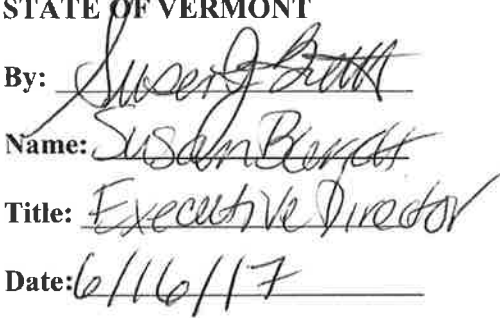 STATE OF VERMONT
By: Susan J Barrett
Name: Susan Barrett
Title: Executive Director
Date: 6/16/17